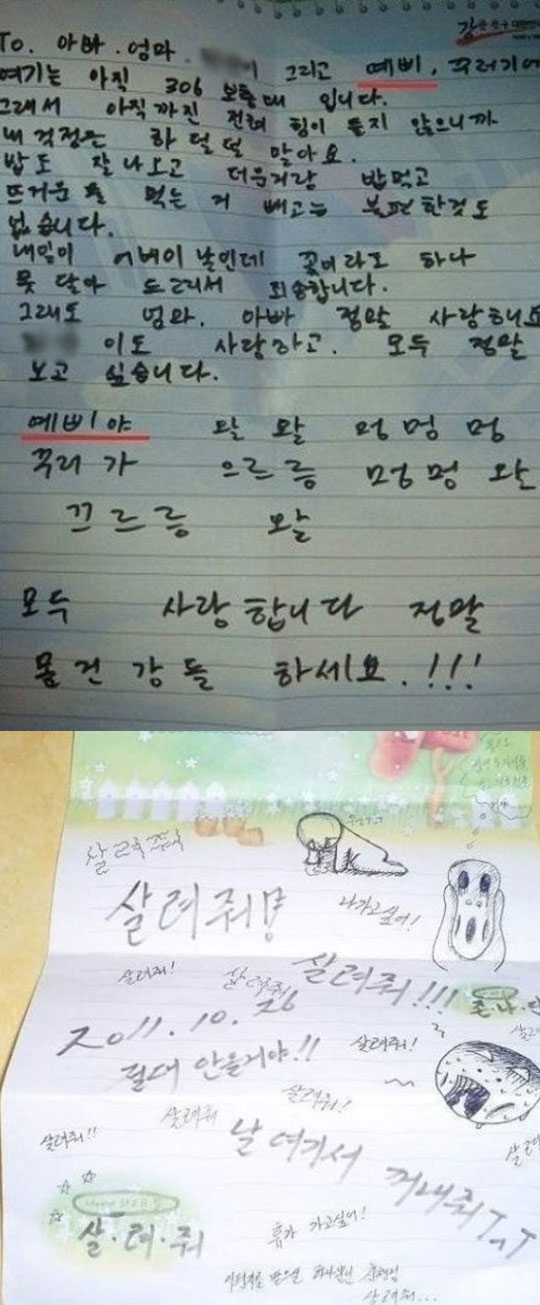 To. 아빠. 엄마. 그리고 예삐. 꾸러기에
여기는 아직 306 보충대 입니다.
그래서 아직까진 전혀 힘이 들지 않으니까
내 걱정은 하덜덜 말아요.
밥도 잘 나오고 더운거랑 밥먹고
뜨거운 물 먹는 거 빼고는 불편한것도
없습니다.
내일이 어버이 날인데 꽃이라도 하나
못 달아 드려서 죄송합니다.
그래도 엄마, 아빠 정말 사랑해요
이도 사랑하고. 모두 정말
보고 싶습니다.
예삐야 왈 왈 멍 멍 멍
꾸러가 으르릉 멍멍 왈
끄르릉 왈
모두 사랑합니다 정말
몸 건강들 하세요.!!!
살려줘
살려줘!
나가고싶어!
살려줘!
살려줘
살려줘!!!
2011.10.26
살려줘!
절대 안올거야!!
살려줘!
살려줘
살려줘!!
날 여기서 꺼내줘 TㅅT
살·려·줘
휴가 가고싶어!
살려줘...